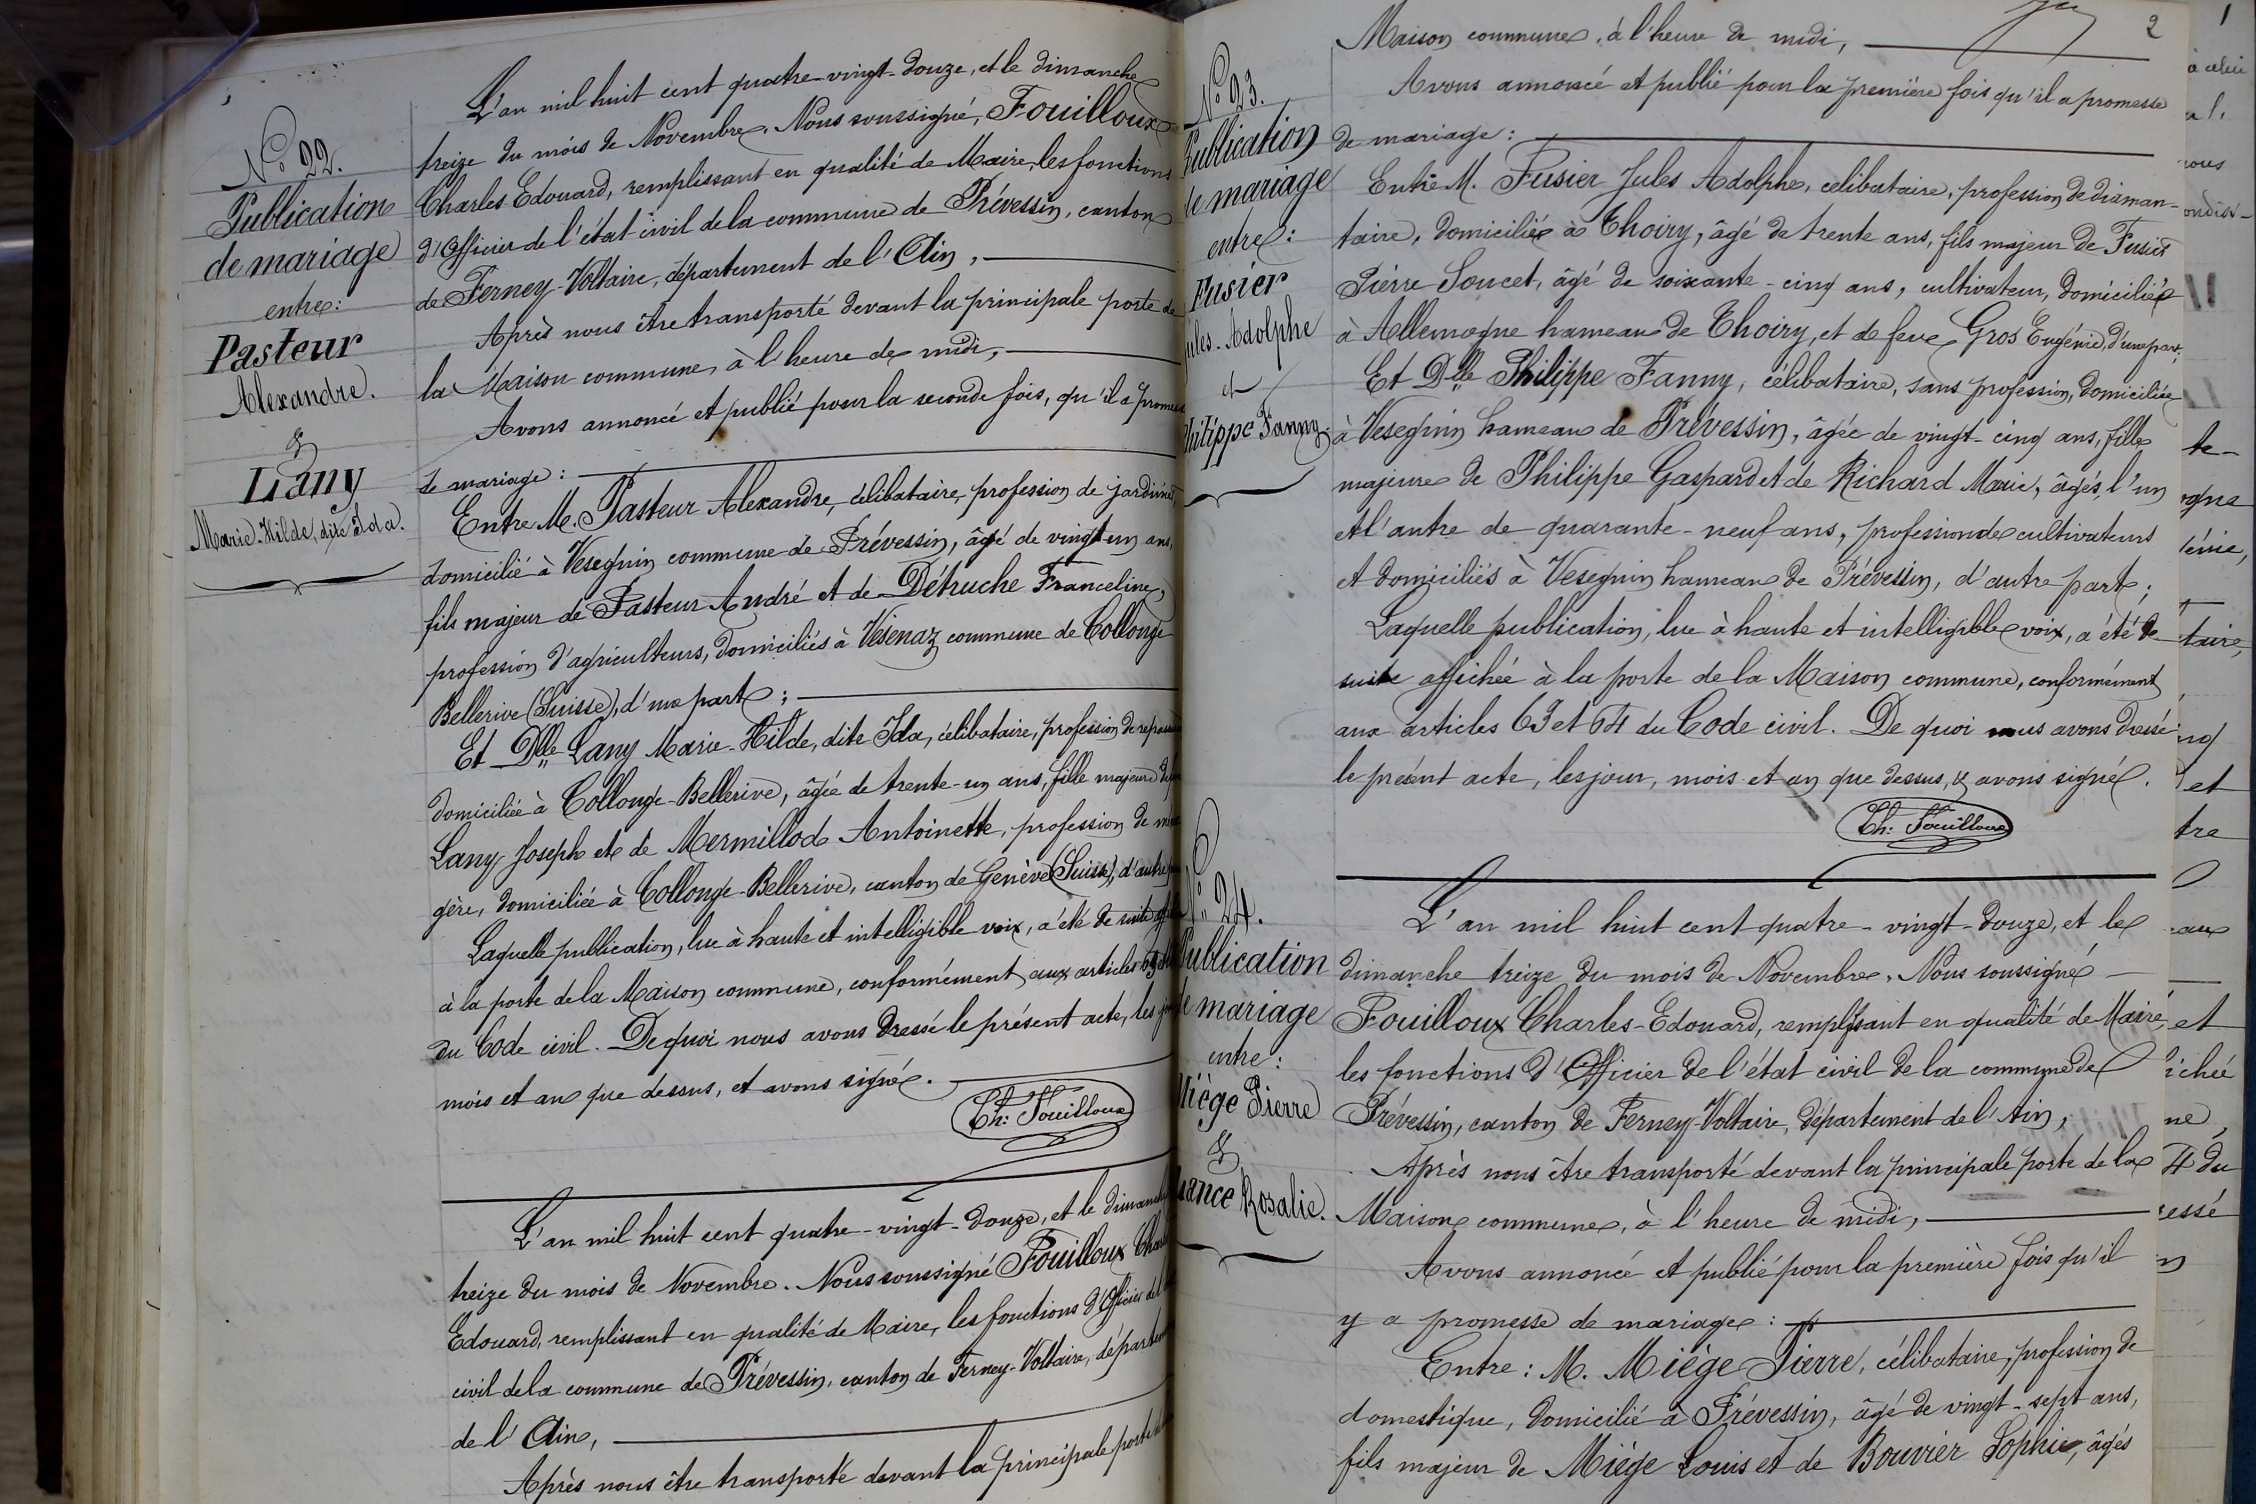 N° 22.
Publication
de mariage
entre:
Pasteur
Alexandre.
&
Lany
Marie-Hilde, dite Ida.
L'an mil huit cent quatre-vingt-douze, et le dimanche
treize du mois de Novembre. Nous soussigné, Fouilloux
Charles Edouard, remplissant en qualité de Maire, les fonctions
d'Officier de l'état civil de la commune de Prévessin, canton
de Ferney-Voltaire, département de l'Ain,
Après nous être transporté devant la principale porte de
la Maison commune, à l'heure de midi,
Avons annoncé et publié pour la seconde fois, qu'il a
de mariage:
Entre M. Pasteur Alexandre, célibataire, profession de jardinier,
domicilié à Vesegnin commune de Prévessin, âgé de vingt un ans,
fils majeur de Pasteur André et de Détruche Franceline,
profession d'agriculteurs, domiciliés à Vésenaz commune de Collonge
Bellerive (Suisse), d'une part;
Et Dlle Lany Marie-Hilde, dite Ida, célibataire, profession de
domiciliée à Collonge-Bellerive, âgée de trente-un ans, fille majeure
Lany Joseph et de Mermillod Antoinette, profession de
gère, domiciliée à Collonge-Bellerive, canton de Genève (Suisse), d'autre
Laquelle publication, lue à haute et intelligible voix, a été de suite
à la porte de la Maison commune, conformément aux articles 63
du Code civil. De quoi nous avons dressé le présent acte, les
mois et an que dessus, et avons signé.
Ch: Fouilloux
L'an mil huit cent quatre-vingt-douze, et le
treize du mois de Novembre. Nous soussigné Fouilloux
Edouard, remplissant en qualité de Maire, les fonctions d'Officier
civil de la commune de Prévessin, canton de Ferney-Voltaire,
de l'Ain,
Après nous être transporté devant la principale porte
2
N° 23.
Publication
de mariage
entre:
Fusier
Jules-Adolphe
et
Philippe Fanny.
Maison commune, à l'heure de midi,
Avons annoncé et publié pour la première fois qu'il a promesse
de mariage:
Entre M. Fusier Jules Adolphe, célibataire, profession de diaman-
taire, domicilié à Thoiry, âgé de trente ans, fils majeur de Fusier
Pierre Soucet, âgé de soixante-cinq ans, cultivateur, domicilié
à Allemogne hameau de Thoiry, et de feue Gros Eugénie, d'une part,
Et Dlle Philippe Fanny, célibataire, sans profession, domiciliée
à Vesegnin hameau de Prévessin, âgée de vingt-cinq ans, fille
majeure de Philippe Gaspard et de Richard Marie, âgés, l'un
et l'autre de quarante-neuf ans, profession de cultivateurs
et domiciliés à Vesegnin hameau de Prévessin, d'autre part;
Laquelle publication, lue à haute et intelligible voix, a été de
suite affichée à la porte de la Maison commune, conformément
aux articles 63 et 64 du Code civil. De quoi nous avons dressé
le présent acte, les jour, mois et an que dessus, & avons signé.
Ch: Fouilloux
N° 24.
Publication
de mariage
entre:
Miège Pierre
&
Rosalie.
L'an mil huit cent quatre-vingt-douze, et le
dimanche treize du mois de Novembre. Nous soussigné
Fouilloux Charles-Edouard, remplissant en qualité de Maire,
les fonctions d'Officier de l'état civil de la commune de
Prévessin, canton de Ferney-Voltaire, département de l'Ain,
Après nous être transporté devant la principale porte de la
Maison commune, à l'heure de midi,
Avons annoncé et publié pour la première fois qu'il
y a promesse de mariage:
Entre: M. Miège Pierre, célibataire, profession de
domestique, domicilié à Prévessin, âgé de vingt-sept ans,
fils majeur de Miège Louis et de Bouvier Sophie, âgés
1